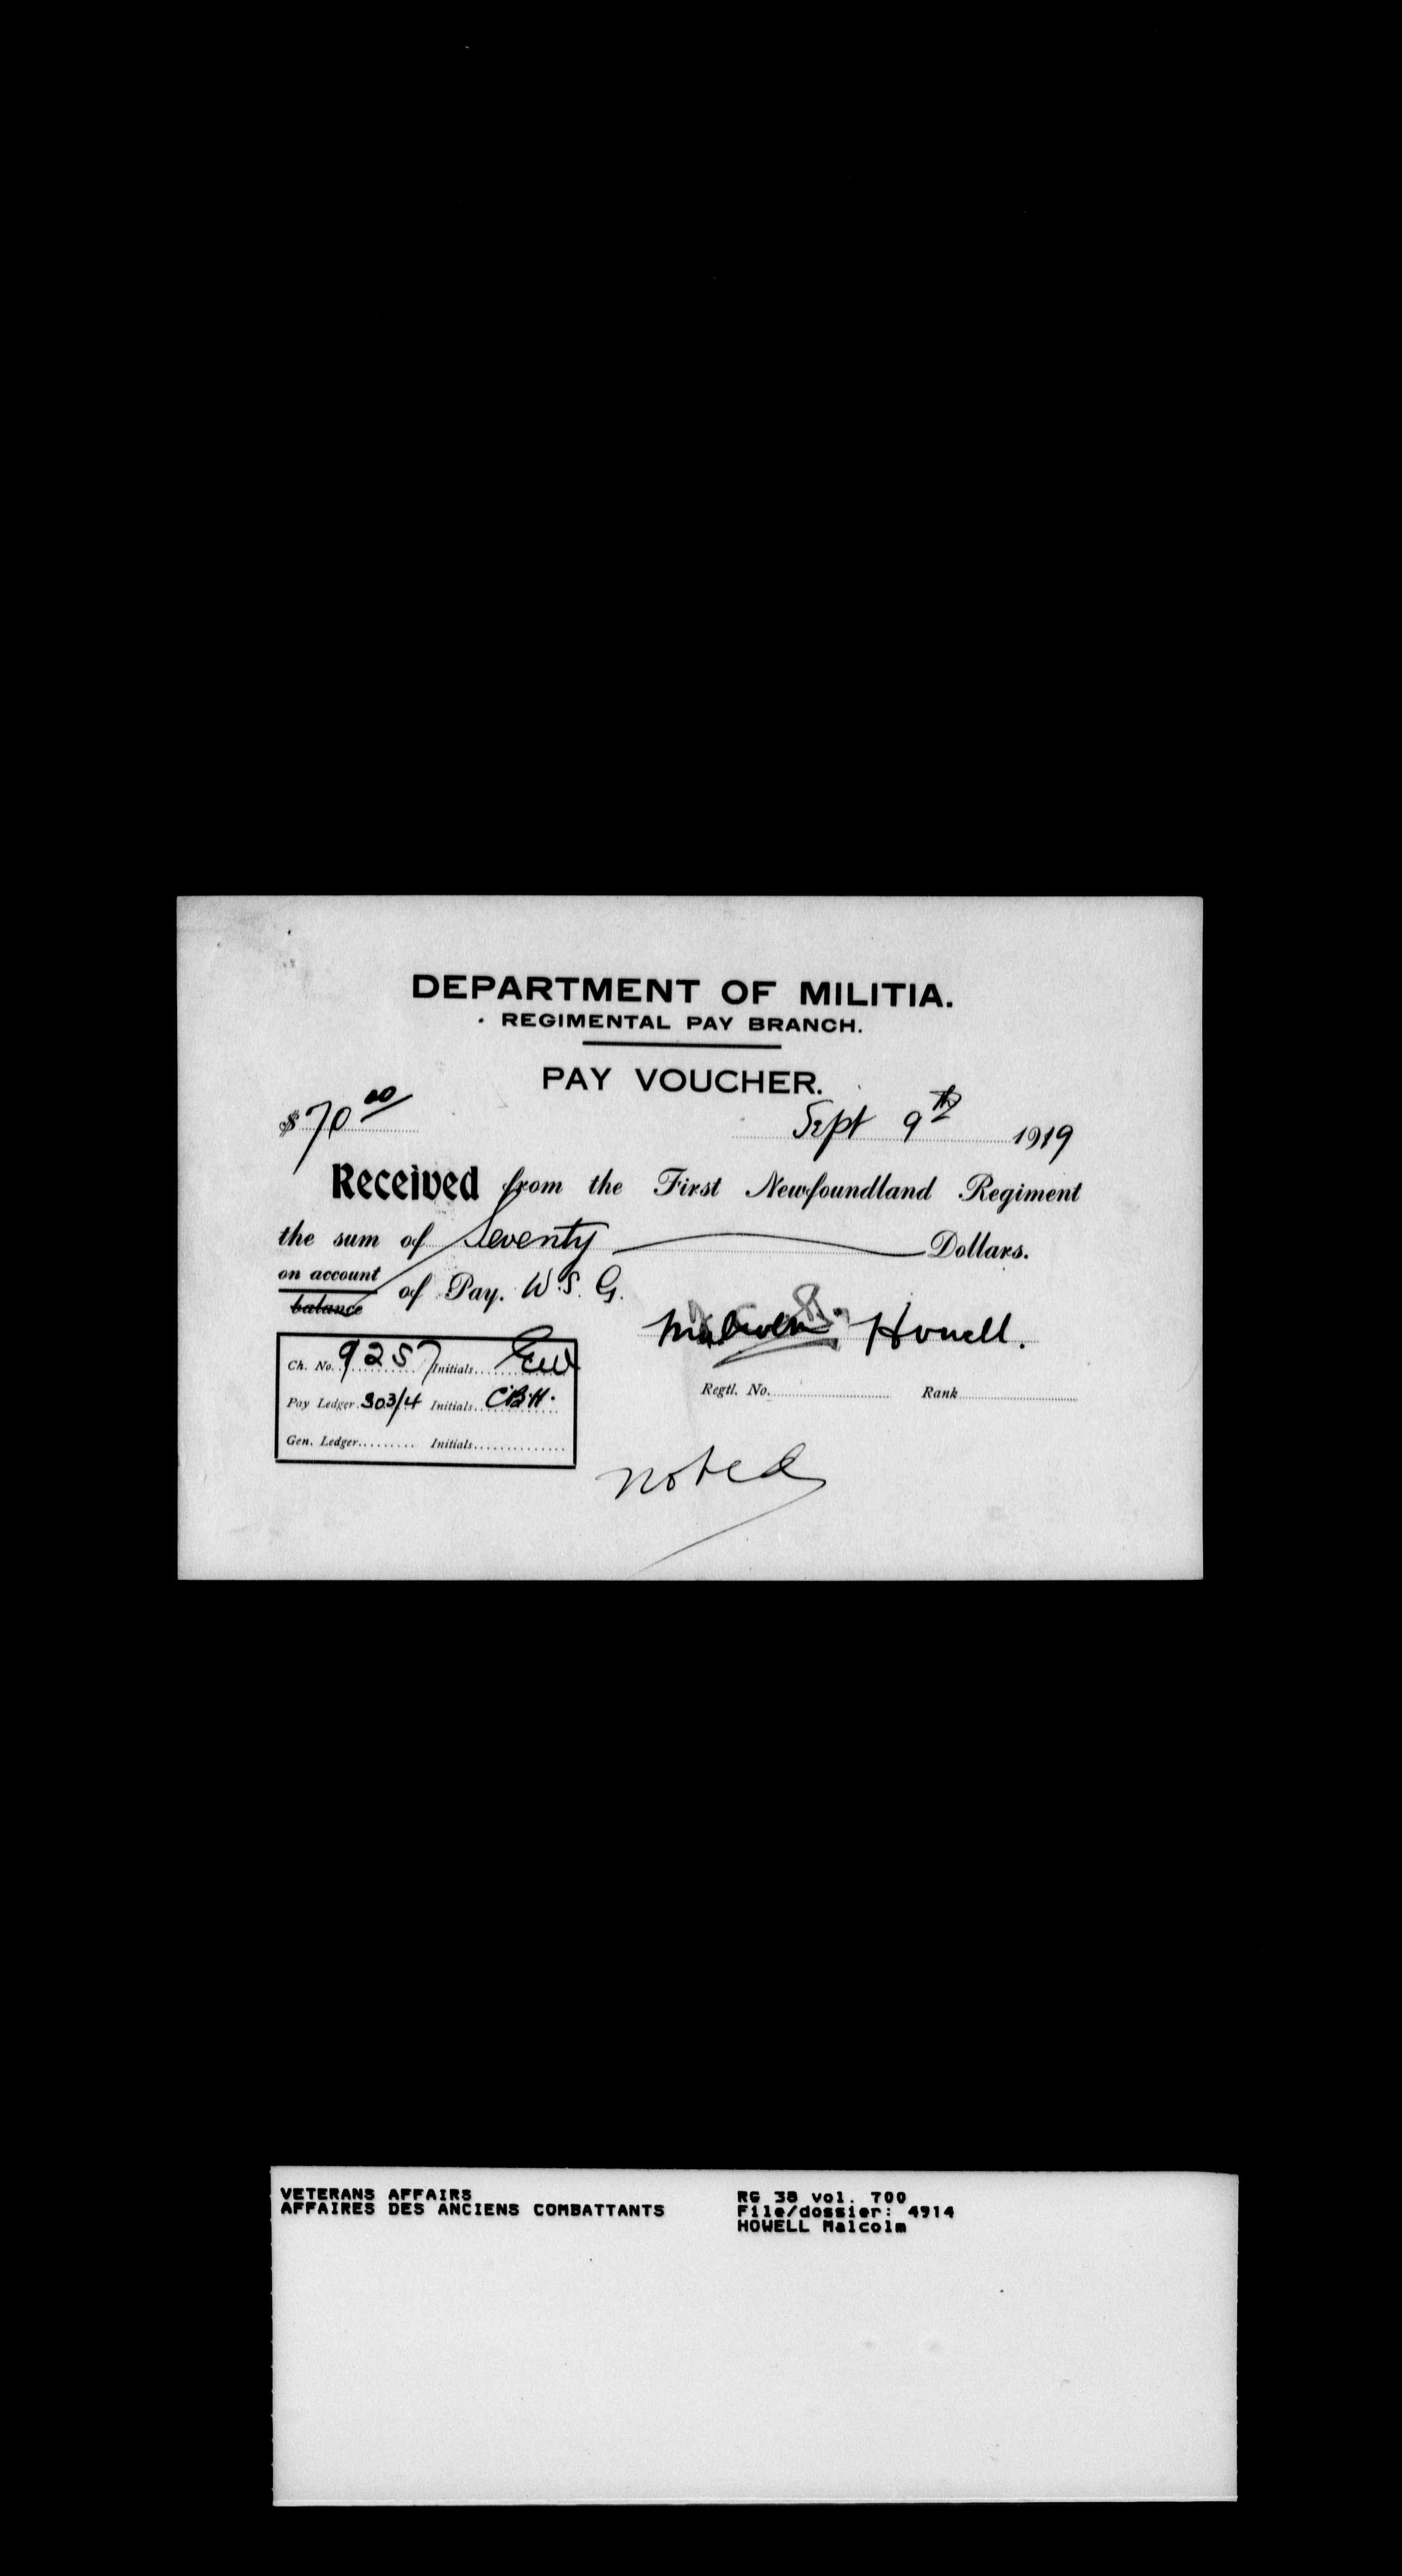 DEPARTMENT OF MILITIA.
REGIMENTAL PAY BRANCH.
PAY VOUCHER.
$70 00
Sept 9th 1919
Received from the First Newfoundland Regiment
the sum of Seventy Dollars.
on account
balance
of Pay. W.S.G.
Malcolm Howell.
Ch. No. 9257 Initials
Regtl. No. Rank
Pay Ledger 303/4 Initials C.B.H.
Gen. Ledger Initials
noted
VETERANS AFFAIRS
AFFAIRES DES ANCIENS COMBATTANTS
RG 38 vol. 700
File/dossier: 4914
HOWELL Malcolm